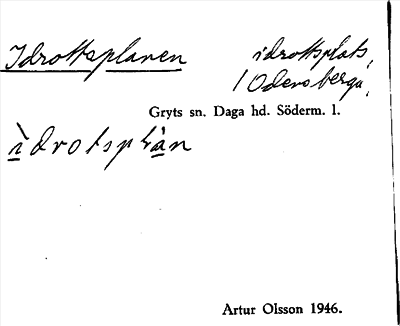 Idrottsplanen
idrottsplats,
/ Odensberga,
Gryts sn. Daga hd. Söderm. l.
Artur Olsson 1946.